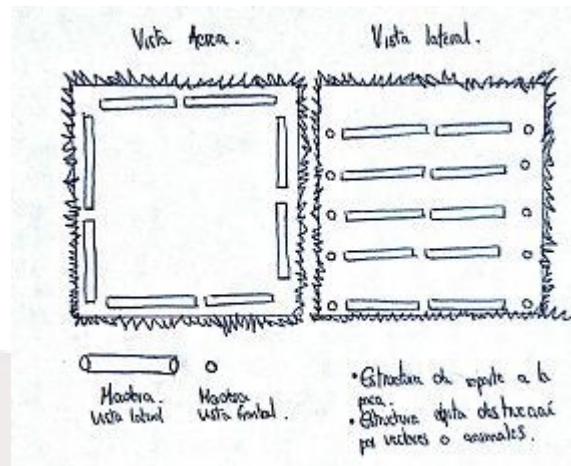 Vista Aerea.
Vista lateral.
Madera.
Vista lateral
Madera
Vista frontal.
• Estructura da soporte a la
• Estructura evita obstrucción
por vectores o animales.